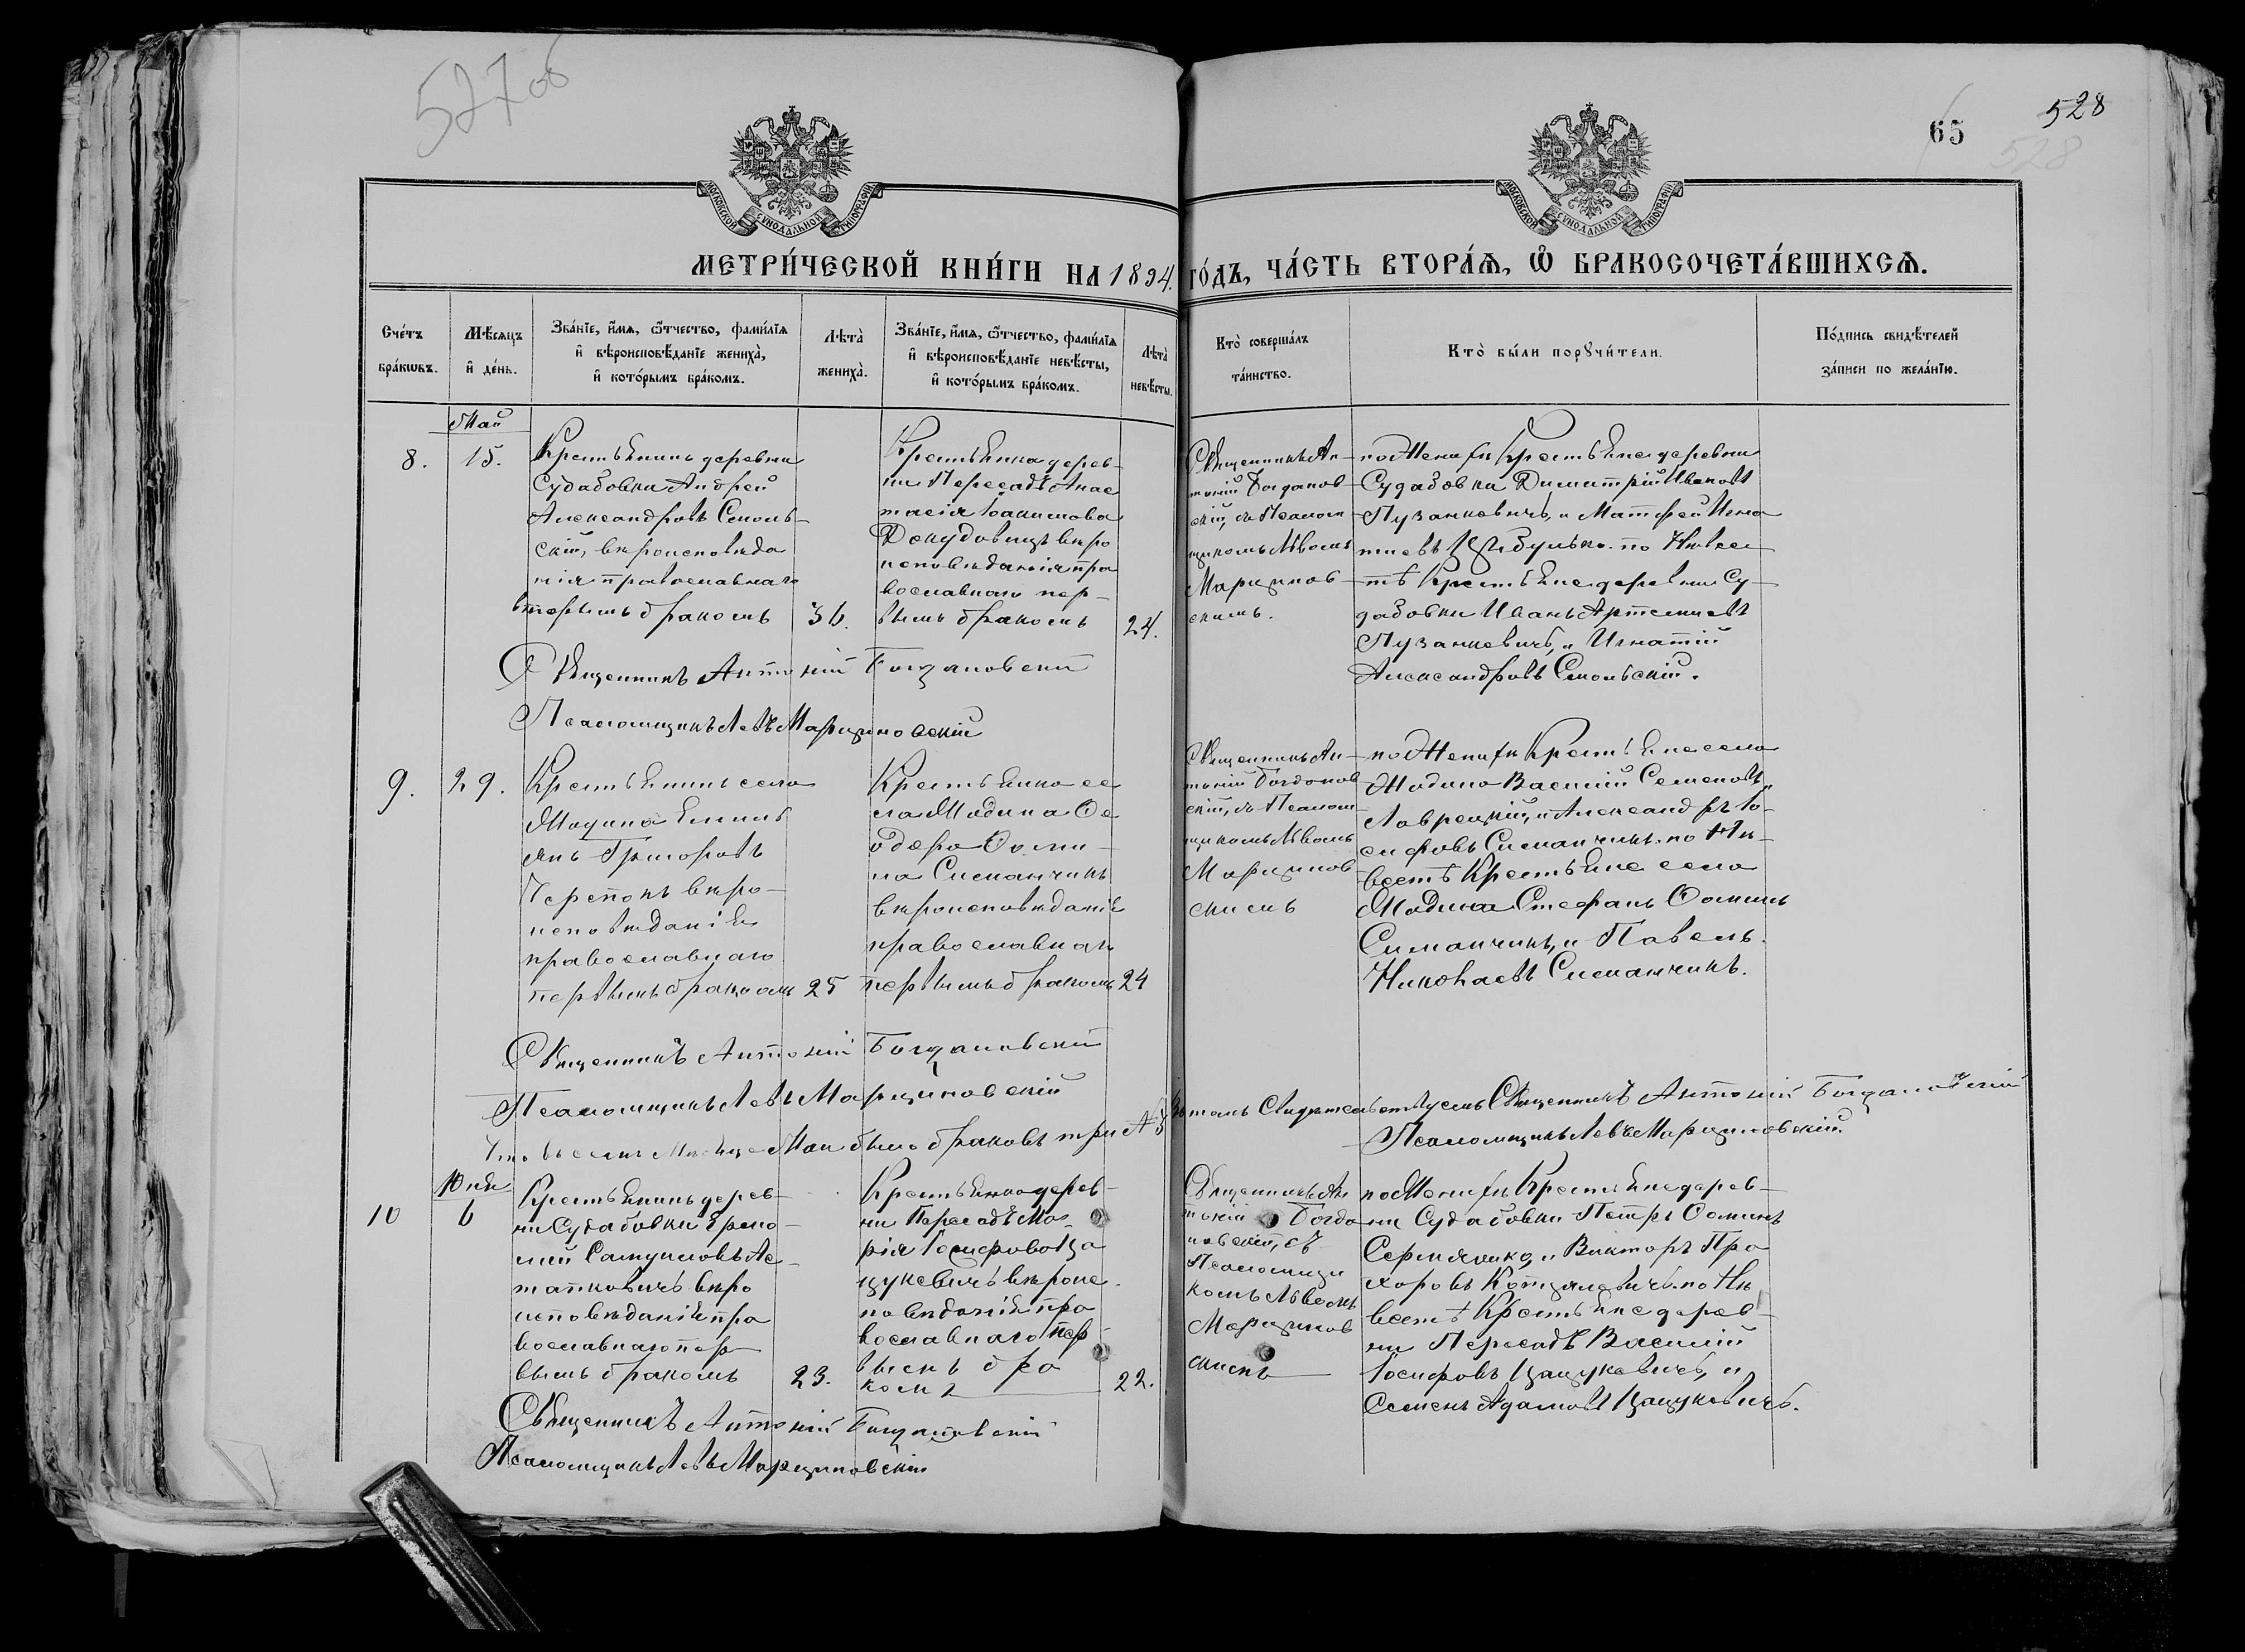 527об
65
528
528
МОСКОВСКОЙ СѴНОДАЛЬНОЙ ТИПОГРАФІИ
МОСКОВСКОЙ СѴНОДАЛЬНОЙ ТИПОГРАФІИ
МЕТРИ́ЧЕСКОЙ КНИ́ГИ НА 1894. ГО́ДЪ, ЧА́СТЬ ВТОРА́Ѧ, Ѽ БРАКОСОЧЕТА́ВШИХСѦ.
Сче́тъ бра́кѡвъ.
Мѣ́сяцъ и҆ де́нь.
Зва́нїе, и҆́мя, ѻ҆́тчество, фами́лїя и҆ вѣроисповѣ́данїе жениха̀, и҆ кото́рымъ бра́комъ.
Лѣта̀ жениха̀.
Зва́нїе, и҆́мя, ѻ҆́тчество, фами́лїя и҆ вѣроисповѣ́данїе невѣ́сты, и҆ кото́рымъ бра́комъ.
Лѣта̀ невѣ́сты.
Кто̀ соверша́лъ та́инство.
Кто̀ бы́ли порꙋчи́тели.
По́дпись свидѣ́телей за́писи по жела́нїю.
Май
8.
15.
Крестьянинъ деревни
Судабовки Андрей
Александровъ Сколь-
скій, вѣроисповѣда
нія православнаго
вторымъ бракомъ
36.
Крестьянка дерев-
ни Пересадъ Анас
тасія Іоакимова
Докудовицъ вѣро
исповѣданія пра
вославнаго пер-
вымъ бракомъ
24.
Священникъ Ан-
тоній Богданов
скій, съ Псаломщ
щикомъ Львомъ
Марцинов
скимъ.
по Женихѣ Крестьяне деревни
Судабовки Димитрій Ивановъ
Пузанкевичъ, и Матфей Игна
тіевъ Цыбулько. по Невѣс
тѣ Крестьяне деревни Су-
дабовки Иванъ Артемьевъ
Пузанкевичъ, и Игнатій
Александровъ Скольскій.
Священникъ Антоній Богдановскій
Псаломщикъ Левъ Марциновскій
9.
29.
Крестьянинъ села
Жодина Емиль
янъ Григоровъ
Черепокъ вѣро-
исповѣданія
православнаго
первымъ бракомъ
25
Крестьянка се
ла Жодина Ѳе
одора Ѳоми-
на Симанчикъ
вѣроисповѣданія
православнаго
первымъ бракомъ
24
Священникъ Ан-
тоній Богданов
скій, съ Псалом
щикомъ Львомъ
Марцинов
скимъ
по Женихѣ Крестьяне села
Жодино Василій Семеновъ
Лаврецкій, и Александръ Іо-
сифовъ Симанчикъ. по Не-
вестѣ Крестьяне села
Жодина Стефанъ Ѳоминъ
Симанчикъ, и Павелъ
Николаевъ Симанчикъ.
Священникъ Антоній Богдановскій
Псаломщикъ Левъ Марциновскій
Что въ семъ Мѣсяце Маи было браковъ три № 3 въ томъ Свидѣтельствуемъ Священникъ Антоній Богдановскій
Псаломщикъ Левъ Марциновскій
Юня
10
6
Крестьянинъ дерев-
ни Судабовки Ермо-
лій Самуиловъ Ас-
тапковичъ вѣро
исповѣданія пра
вославнаго пер
вымъ бракомъ
23.
Крестьянка дерев-
ни Пересадъ Ма-
рія Іосифова Ца
цукевичъ вѣроис-
повѣданія пра
вославнаго пер-
вымъ бра
комъ
22.
Священникъ Ан
тоній Богда
новскій, съ
Псаломщи
комъ Львомъ
Марцинов
скимъ
по Женихѣ Крестьяне дерев-
ни Судабовки Петръ Ѳоминъ
Сермяжко, и Викторъ Про
хоровъ. по Не
вестѣ Крестьяне дерев-
ни Пересадъ Василій
Іосифовъ Цацукевичъ, и
Семенъ Адамовъ Цацукевичъ.
Священникъ Антоній Богдановскій
Псаломщикъ Левъ Марциновскій